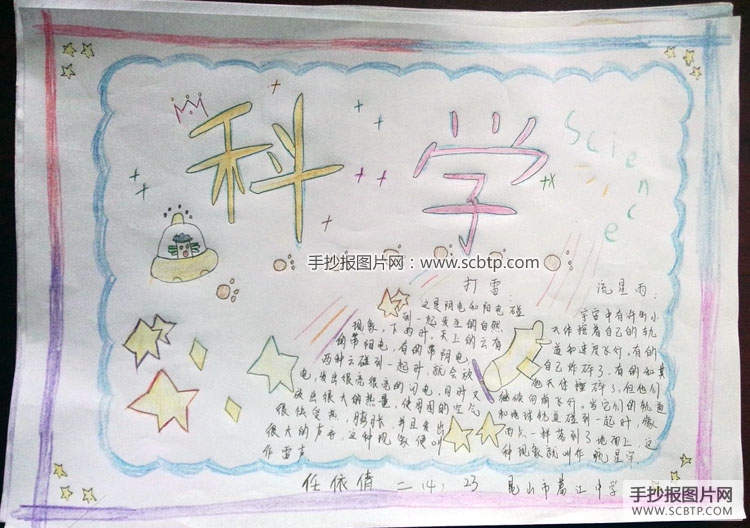 科学
Science
手抄报图片网：www.scbtp.com
打雷：
这是阴电和阳电碰
到一起发生的自然
现象，下雨时，天上的云有
的带阳电，有的带阴电，
两种云碰到一起时，就会放
电，发出很亮很亮的闪电，同时又
放出很大的热量，使周围的空气
很快受热，膨胀，并且发出
很大的声音，这种现象便叫
作雷声。
流星雨：
宇宙中有许多小
天体按着自己的轨
道和速度飞行，有的
自己炸碎了，有的和其
他天体撞碎了，但他们
继续向前飞行，当它们的轨道
和地球轨道碰到一起时，像
雨点一样落到了地面上，这
种现象就叫作流星雨
任依倩 二（4） 23 昆山市葛江中学
手抄报图片网
WWW.SCBTP.COM